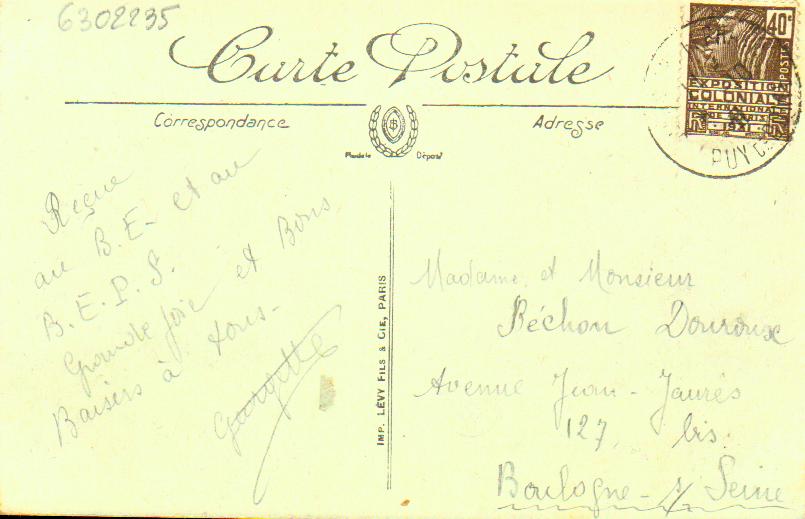 6302235
Carte Postale
Correspondance
Adresse
Modèle Déposé
40c
POSTES
EXPOSITION
COLONIALE
INTERNATIONALE
PARIS 1931
PUY DE
Reçue
au B.E- et au
B.E.P.S.
Grande joie et Bons
Baisers à tous-
IMP. LÉVY FILS & CIE, PARIS
Madame et Monsieur
Béchon Douroux
Avenue Jean-Jaurès
127 bis
Boulogne-s/Seine